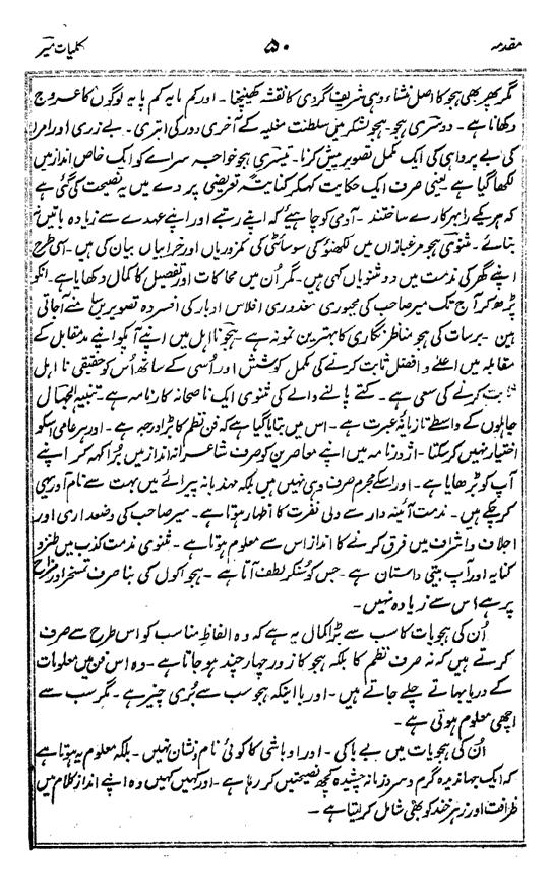 مقدمہ ۵۰ کلیات میر
مگر پھر بھی ہجو کا اصل منشاء وہی شریف گردی کا نقشہ کھینچنا ۔ اور کم مایہ کم پایہ لوگوں کا عروج
دکھانا ہے ۔ دوسری ہجو ۔ ہجو لشکر میں سلطنت مغلیہ کے آخری دور کی ابتری ۔ بے زری اور امرا
کی بے پرواہی کی ایک مکمل تصویر پیش کرنا ۔ تیسری ہجو خواجہ سرا ے کو ایک خاص انداز میں
لکھا گیا ہے یعنی صرف ایک حکایت کہکر کنایۃً تعریضی پردے میں یہ نصیحت کی گئی ہے
کہ ہر یکے را بہر کارے ساختند ۔ آدمی کو چاہیے کہ اپنے رتبے اور اپنے عہدے سے زیادہ باتیں نہ
بنائے ۔ مثنوی ہجو مرغبازاں میں لکھنؤ کی سوسائٹی کی کمزوریاں اور خرابیاں بیان کی ہیں ۔ اسی طرح
اپنے گھر کی مذمت میں دو مثنویاں کہی ہیں ۔ مگر اُن میں محاکات اور تفصیل کا کمال دکھایا ہے ۔ انکو
پڑھ کر آج تک میر صاحب کی مجبوری معذوری افلاس ادبار کی افسردہ تصویر سامنے آ جاتی
ہیں ۔ برسات کی ہجو مناظر نگاری کا بہترین نمونہ ہے ۔ ہجو نا اہل میں اپنے آپکو اپنے مدمقابل کے
مقابلہ میں اعلےٰ و افضل ثابت کرنے کی مکمل کوشش اور اُسی کے ساتھ اُس کو حقیقی نا اہل
ثابت کرنے کی سعی ہے ۔ کتے پالنے والے کی مثنوی ایک ناصحانہ کارنامہ ہے ۔ تنبیہ الجہال
جاہلوں کے واسطے تازیانۂ عبرت ہے ۔ اس میں بتایا گیا ہے کہ فن نظم کا بڑا درجہ ہے ۔ اور ہر عامی اسکو
اختیار نہیں کر سکتا ۔ اژدر نامہ میں اپنے معاصرین کو صرف شاعرانہ انداز میں بُرا کہہ کر اپنے
آپ کو بڑھایا ہے ۔ اور اسکے مجرم صرف وہی نہیں ہیں بلکہ مہذبانہ پیرائے میں بہت سے نام آور یہی
کر چکے ہیں ۔ مذمت آئینہ دار سے دلی نفرت کا اظہار ہوتا ہے ۔ میر صاحب کی وضعداری اور
اجلاف و اشراف میں فرق کرنے کا انداز اس سے معلوم ہوتا ہے ۔ مثنوی مذمت کذب میں طنز و
کنایہ اور آپ بیتی داستان ہے ۔ جس کو سنکر لطف آتا ہے ۔ ہجو اکول کی بنا صرف تمسخر اور مزاح
پر ہے اس سے زیادہ نہیں ۔
اُن کی ہجویات کا سب سے بڑا کمال یہ ہے کہ وہ الفاظ مناسب کو اس طرح سے صرف
کرتے ہیں کہ نہ صرف نظم کا بلکہ ہجو کا زور چہار چند ہو جاتا ہے ۔ وہ اس فن میں معلومات
کے دریا بہاتے چلے جاتے ہیں ۔ اور با اینکہ ہجو سب سے بُری چیز ہے ۔ مگر سب سے
اچھی معلوم ہوتی ہے ۔
اُن کی ہجویات میں بے باکی ۔ اور اوباشی کا کوئی نام و نشان نہیں ۔ بلکہ معلوم یہ ہوتا ہے
کہ ایک جہاندیدہ گرم و سرد زمانہ چشیدہ کچھ نصیحتیں کر رہا ہے ۔ اور کہیں کہیں وہ اپنے انداز کلام میں
ظرافت اور زہر خند کو بھی شامل کر لیتا ہے ۔